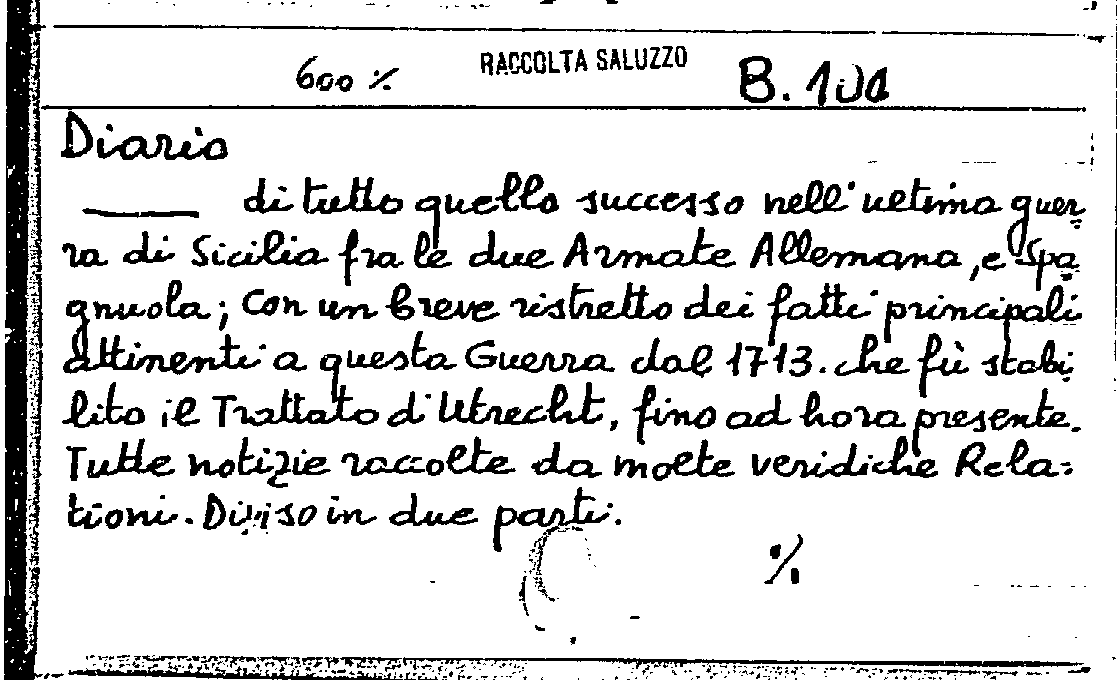 600 % RACCOLTA SALUZZO B. 101
Diario
di tutto quello successo nell'ultima guer
ra di Sicilia fra le due Armate Allemana, e Spa
gnuola; Con un breve ristretto dei fatti principali
attinenti a questa Guerra dal 1713. che fù stabi
lito il Trattato d'Utrecht, fino ad hora presente.
Tutte notizie raccolte da molte veridiche Rela=
tioni. Diviso in due parti.
%